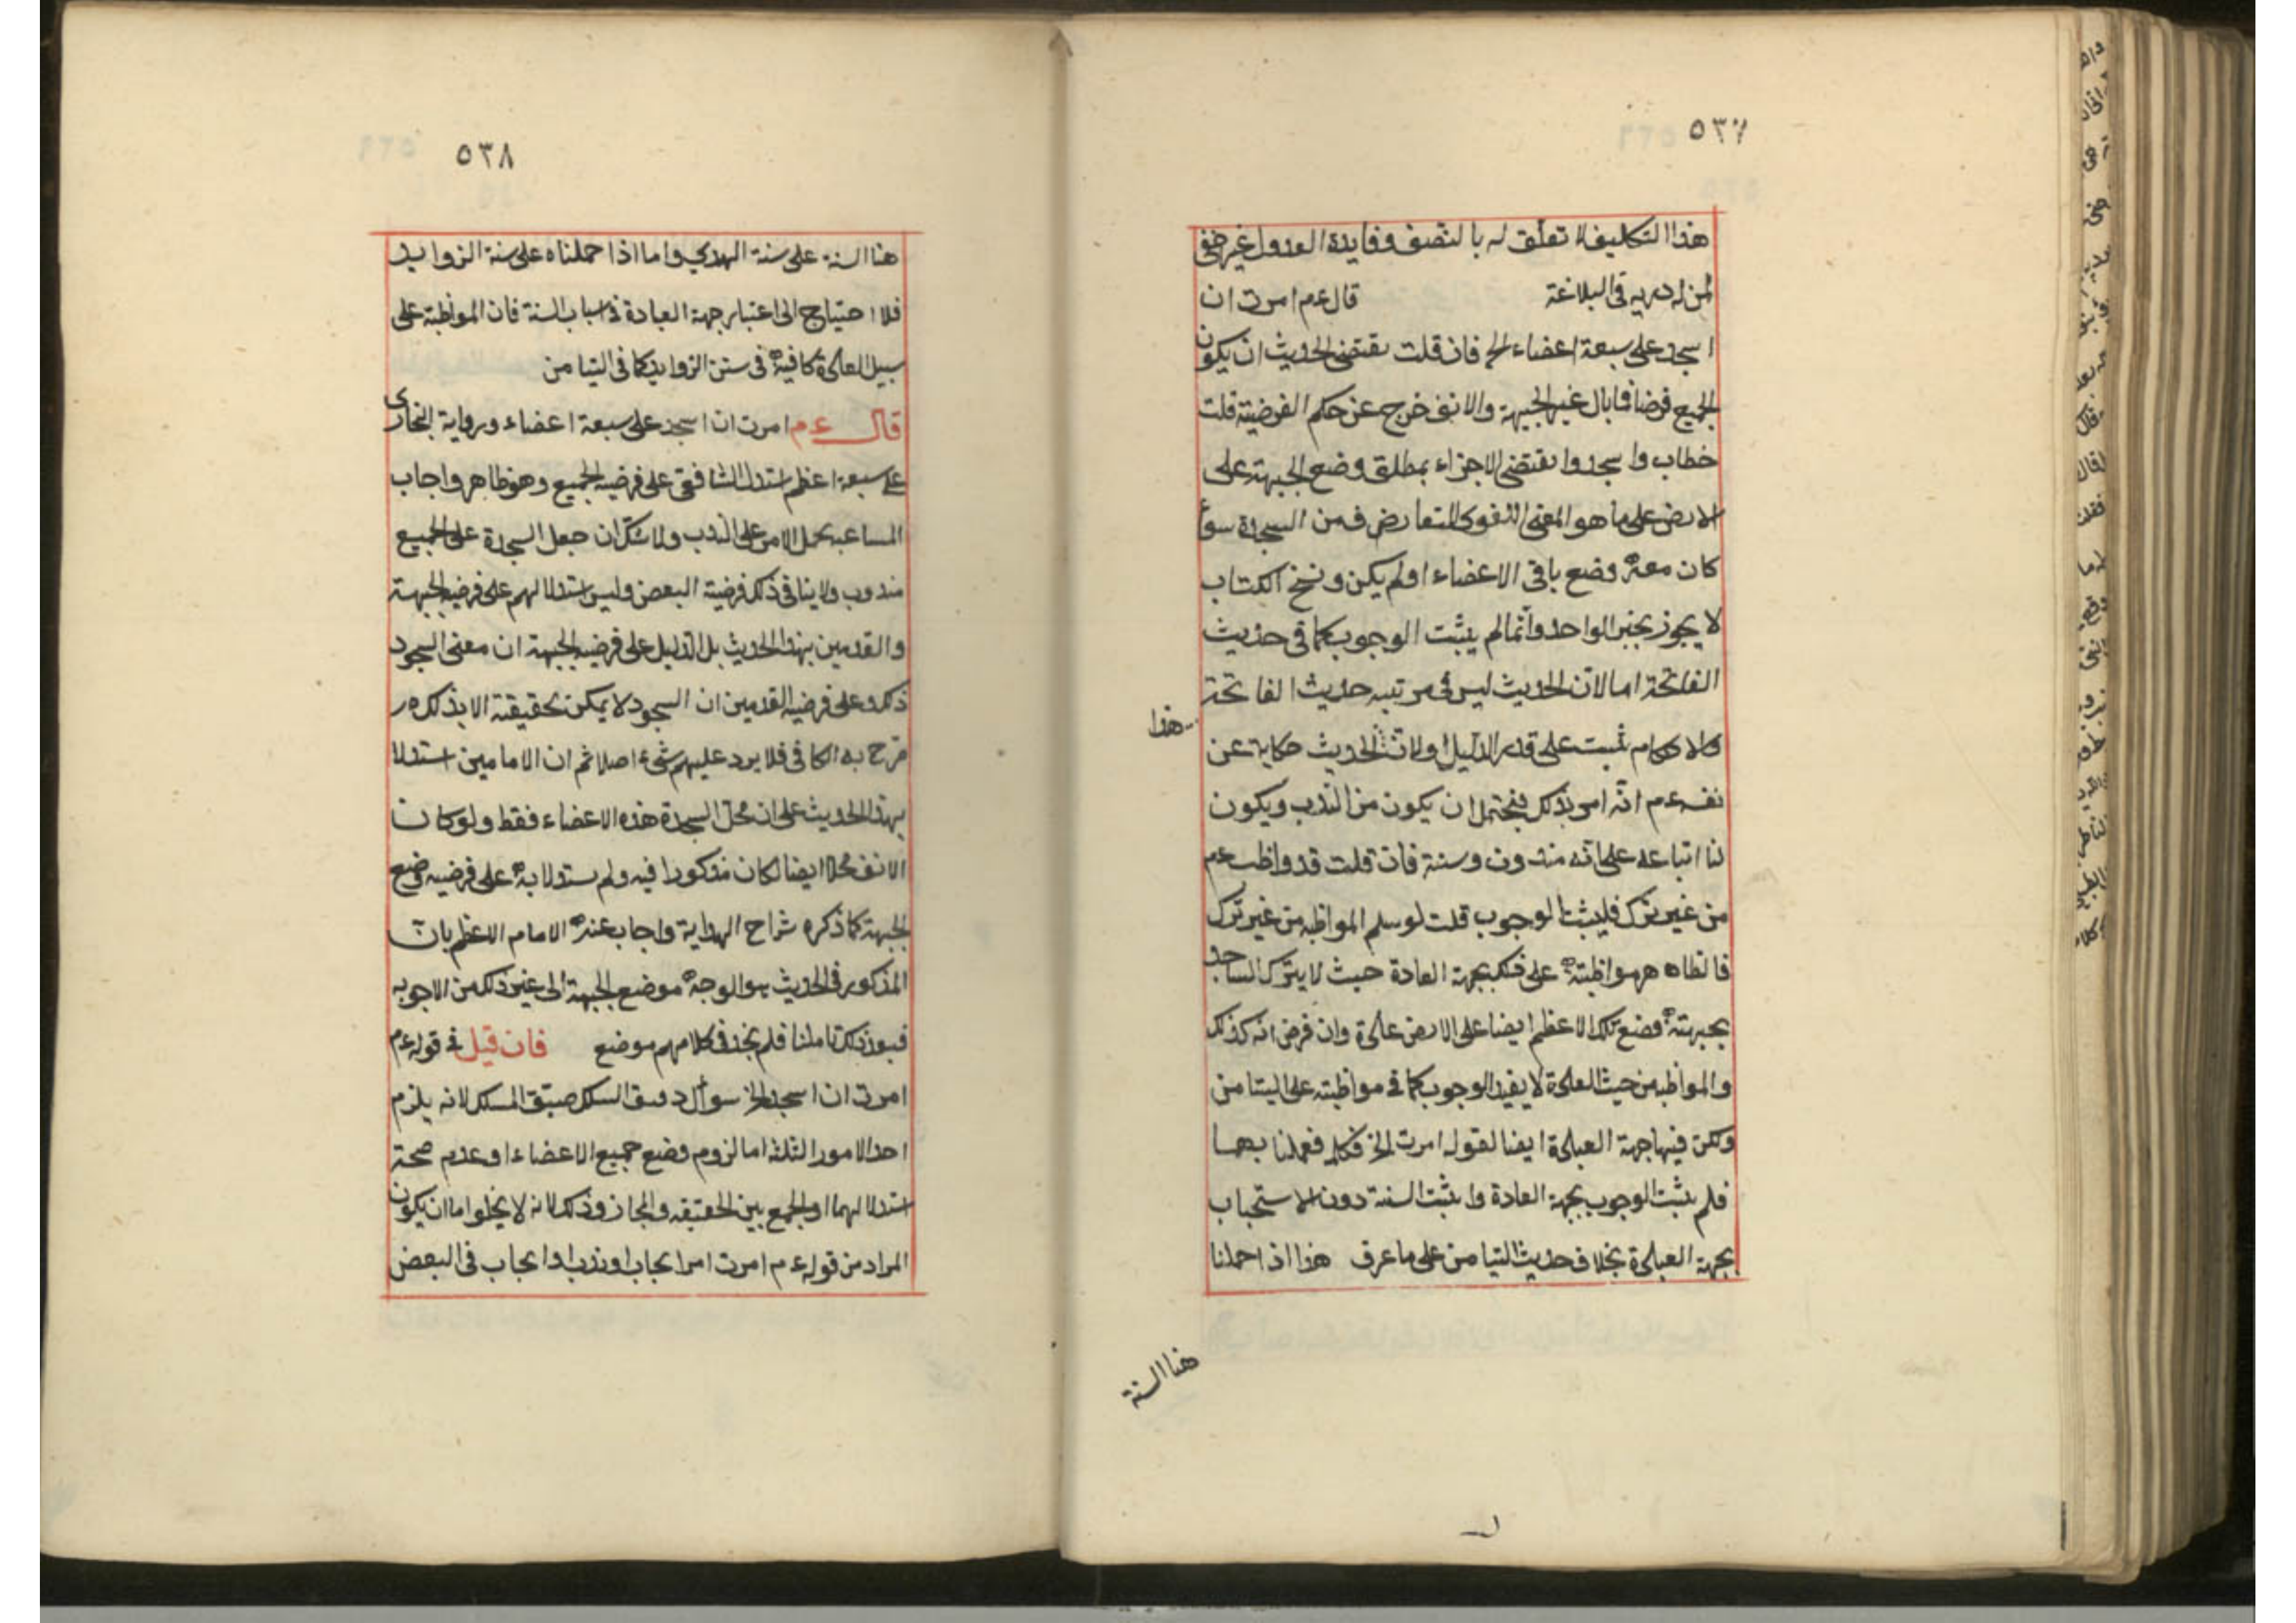 ٥٣٧
هذا التكليف لا تعلق له بالنصف وفايدة العدول غير خفى
لمن له دربه فى البلاغة قال ءم امرت ان
اسجد على سبعة اعضاء الخ فان قلت يقتضى الحديث ان يكون
الجميع فرضا فما بال غير الجبهة والانف خرج عن حكم الفرضية قلت
خطاب واسجدوا يقتضى الاجزاء بمطلق وضع الجبهة على
الارض على ما هو المعنى اللغوى المتعارض فمن السجدة سوأ
كان معه وضع باقى الاعضاء اولم يكن ونسخ الكتاب
لا يجوز بخبر الواحد وانما لم يثبت الوجوب كما فى حديث
الفاتحة اما لان الحديث ليس فى مرتبه حديث الفاتحة
هذا
والاحكام تثبت على قدر الدليل اولان الحديث حكاية عن
نفسه ءم انه امر بذلك فيحتمل ان يكون من الندب ويكون
لنا اتباعه على انه مندوب وسنة فان قلت قد واظب ءم
من غير ترك فليثبت الوجوب قلت لو سلم المواظبه من غير ترك
فالظاه هر مواظبته على ذلك بجهة العادة حيث لا يترك الساجد
بجبهته وضع تلك الاعظم ايضا على الارض عادة وان فرض انه كذلك
والمواظبه من حيث العادة لا يفيد الوجوب كما فى مواظبته على التيامن
ولكن فيها جهة العبادة ايضا لقوله امرت الخ فكلا فعملنا بهما
فلم يثبت الوجوب بجهة العادة واثبت السنة دون الاستحباب
بجهة العبادة بخلاف حديث التيامن على ما عرف هذا اذا حملنا
هنا السنة
٥٣٨
هنا السنة على سنة الهدى واما اذا حملناه على سنة الزوايد
فلا احتياج الى اعتبار جهة العبادة فى اسباب السنة فان المواظبة على
سبيل العادة كافية فى سنن الزوايد كما فى التيامن
قال ءم امرت ان اسجد على سبعة اعضاء ورواية البخارى
على سبعة اعظم استدل الشافعى على فرضية الجميع وهو ظاهر واجاب
المساعبه بحمل الامر على الندب ولا شك ان جعل السجدة على الجميع
مندوب ولا ينافى ذلك فرضية البعض وليس استدلالهم على فرضية الجبهة
والقدمين بهذا الحديث بل الدليل على فرضية الجبهة ان معنى السجود
ذلك وعلى فرضية القدمين ان السجود لا يمكن تحقيقته الا بذلك ر
صرح به الكافى فلا يرد عليهم شىء اصلا ثم ان الامامين استدلا
بهذا الحديث على ان محل السجدة هذه الاعضاء فقط ولو كان
الانف محلا ايضا لكان مذكورا فيه ولم يستدلا به على فرضيه وضع
الجبهة كما ذكره شراح الهداية واجاب عنه الامام الاعظم بان
المذكور فى الحديث هو الوجه موضع الجبهة الى غير ذلك من الاجوبه
فبعد ذلك تاملنا فلم نجد فى كلامهم موضع فان قيل فى قوله ءم
امرت ان اسجد الخ سوأل دقيق السلك ضيق المسلك لانه يلزم
احد الامور الثلثة اما لزوم وضع جميع الاعضاء او عدم صحة
استدلالهما او الجمع بين الحقيقه والمجاز وذلك لانه لا يخلوا اما ان يكون
المراد من قوله ءم امرت امر ايجاب او ندب او ايجاب فى البعض